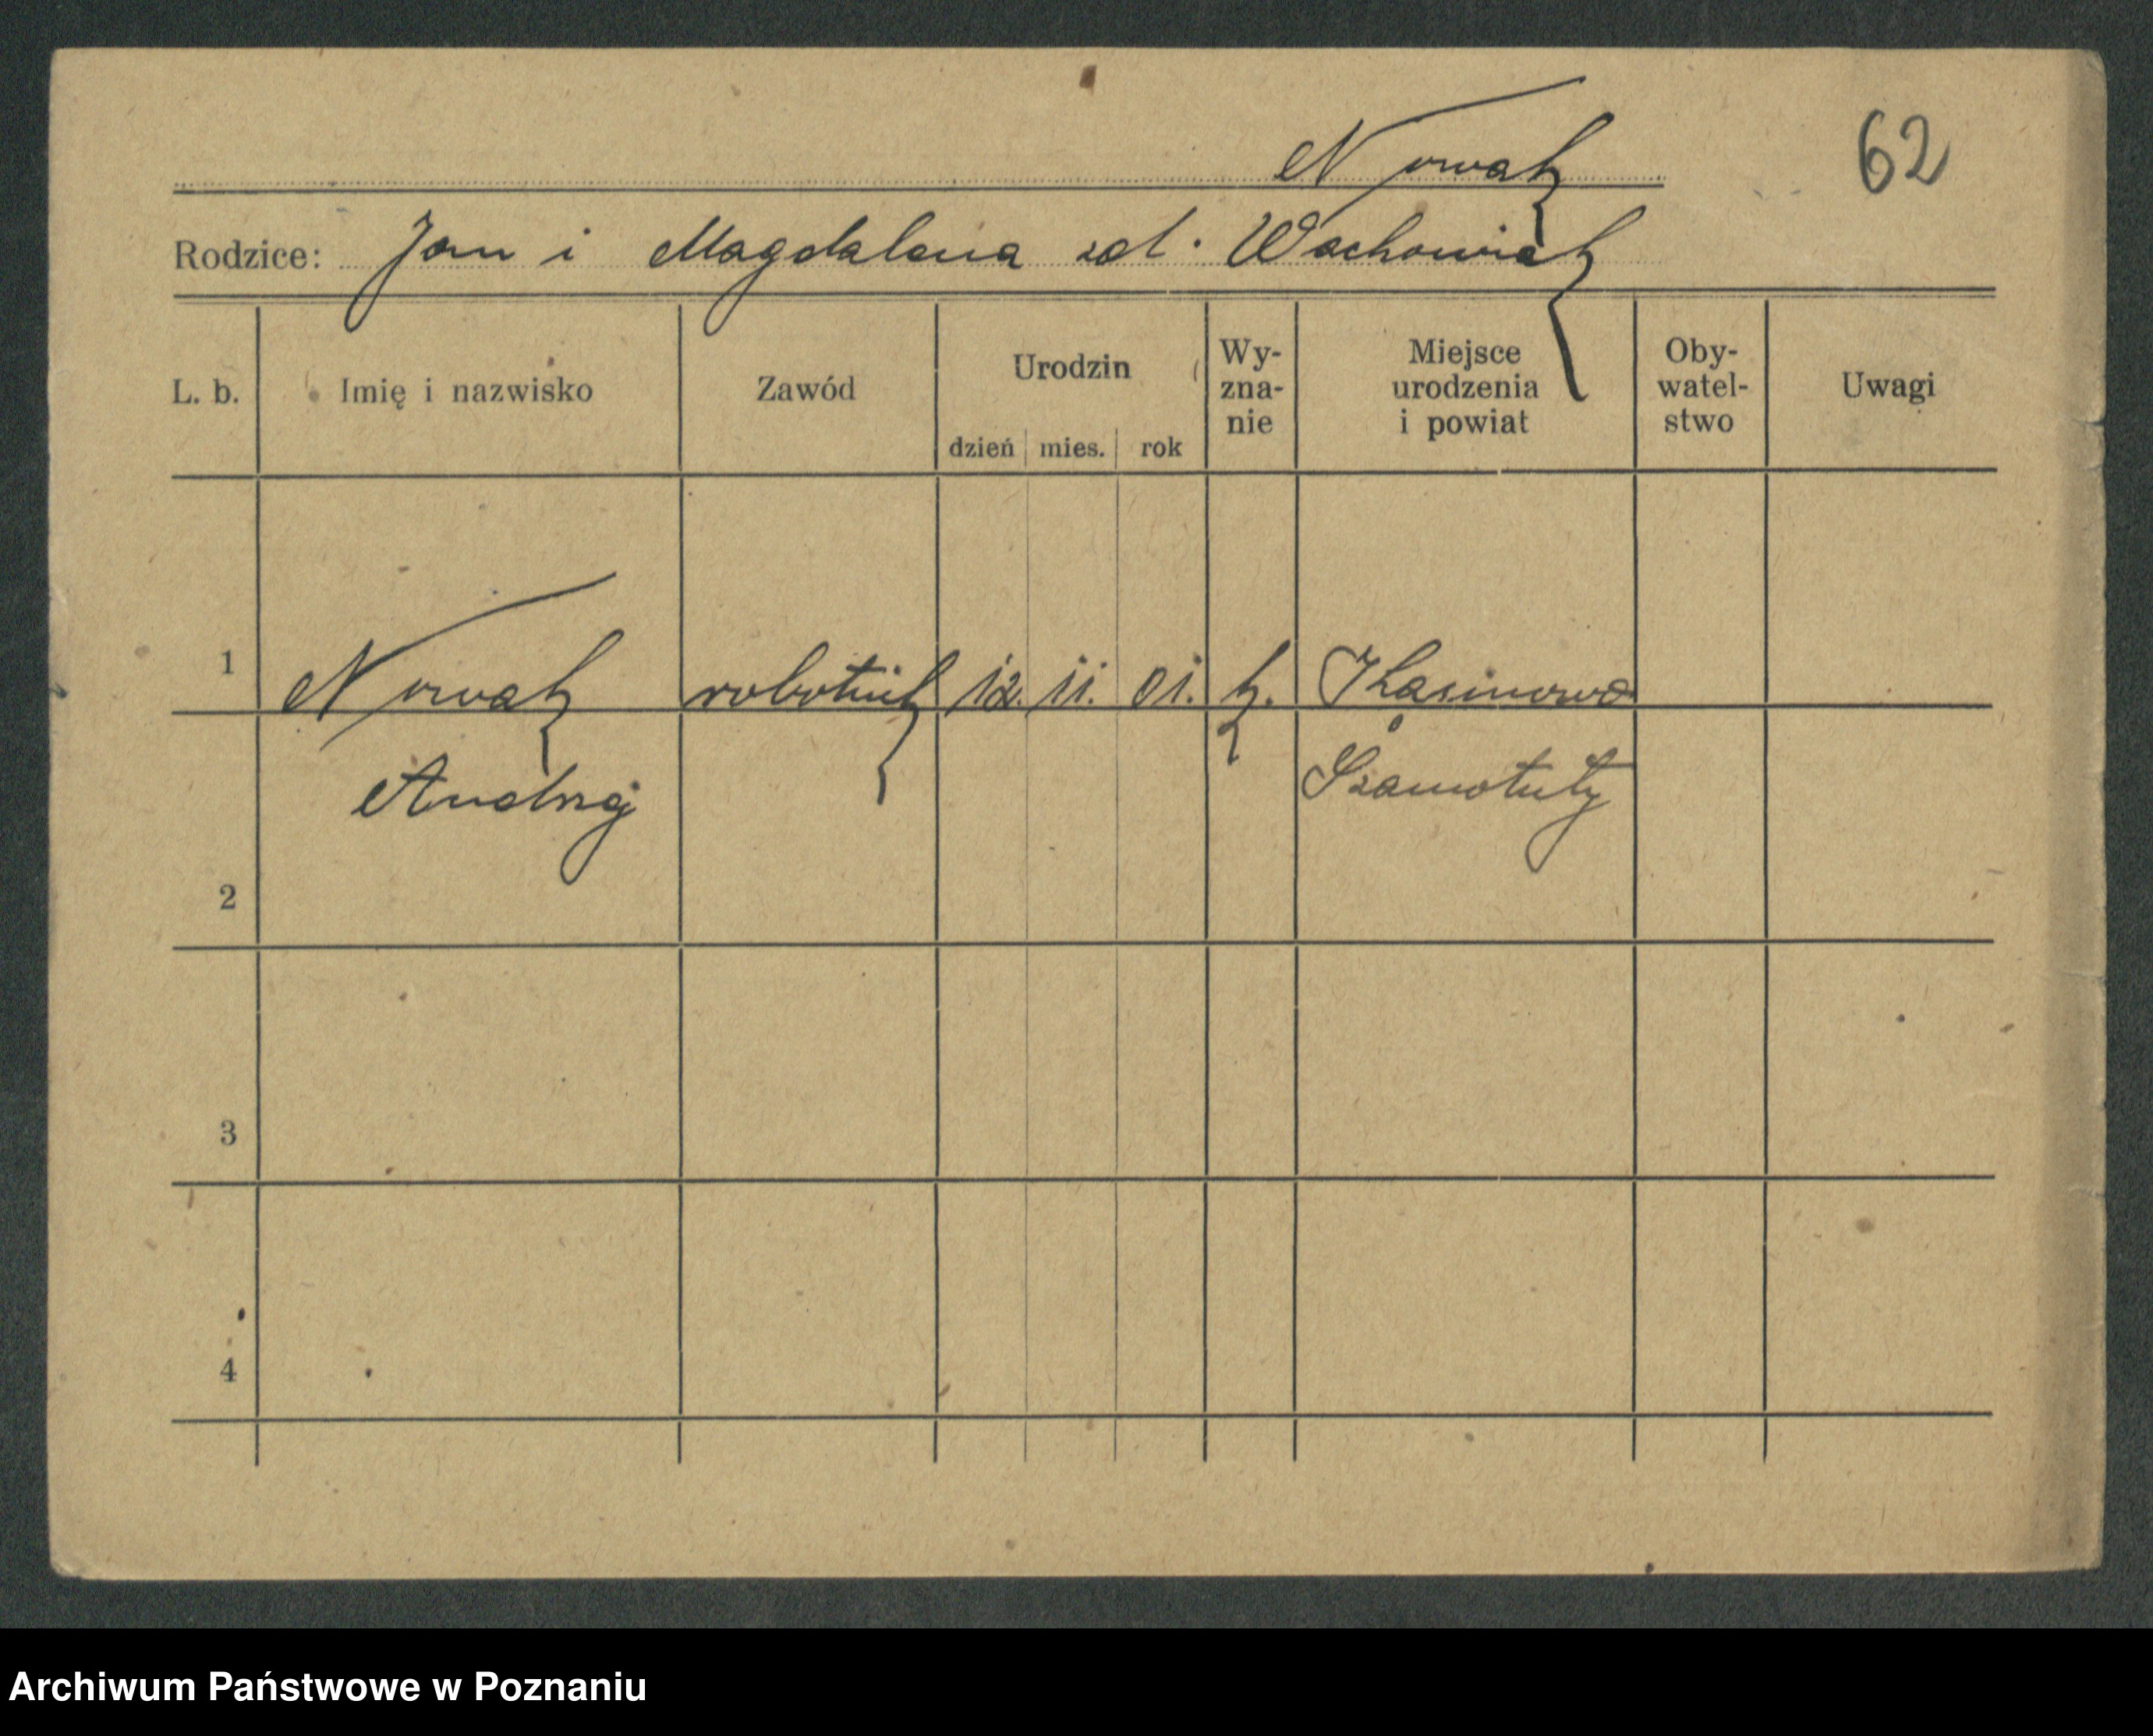 Nowak
62
Rodzice: Jan i Magdalena zd. Wachowiak
L. b. Imię i nazwisko Zawód Urodzin Wy-zna-nie Miejsce urodzenia i powiat Oby-watel-stwo Uwagi
dzień mies. rok
1 Nowak robotnik 12. 11. 01. k.
Andrzej Szamotuły
2
3
4
Archiwum Państwowe w Poznaniu